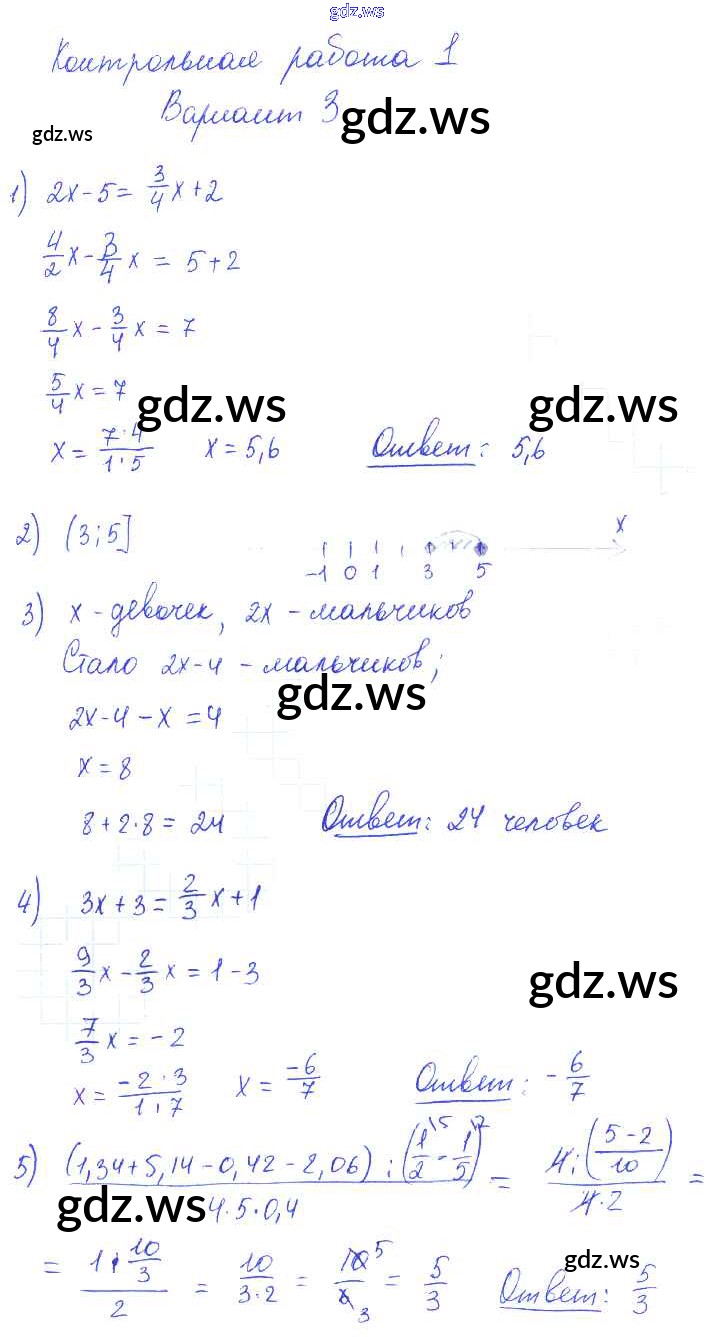 gdz.ws
Контрольная работа 1
Вариант 3
gdz.ws
gdz.ws
1) 2x-5 = 3/4 x+2
4/2 x - 3/4 x = 5+2
8/4 x - 3/4 x = 7
5/4 x = 7
gdz.ws
gdz.ws
x = 7·4/1·5 x = 5,6 Ответ: 5,6
2) (3;5] x
-1 0 1 3 5
3) x - девочек, 2x - мальчиков
Стало 2x-4 - мальчиков;
gdz.ws
gdz.ws
2x-4-x = 4
x = 8
8+2·8 = 24 Ответ: 24 человек
4) 3x+3 = 2/3 x+1
9/3 x - 2/3 x = 1-3
gdz.ws
7/3 x = -2
x = -2·3/1·7 x = -6/7 Ответ: -6/7
5) (1,34+5,14-0,42-2,06) : (1\5/2 - 1\2/5) / 4·5·0,4 = 4:(5-2/10) / 4·2 =
gdz.ws
gdz.ws
= 1·10/3 / 2 = 10/3·2 = 10 5/3 = 5/3 Ответ: 5/3